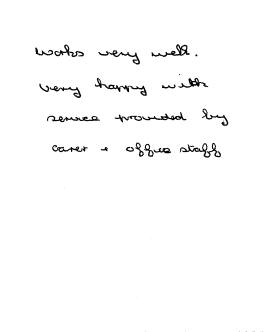 works very well.
very happy with
service provided by
carer + office staff